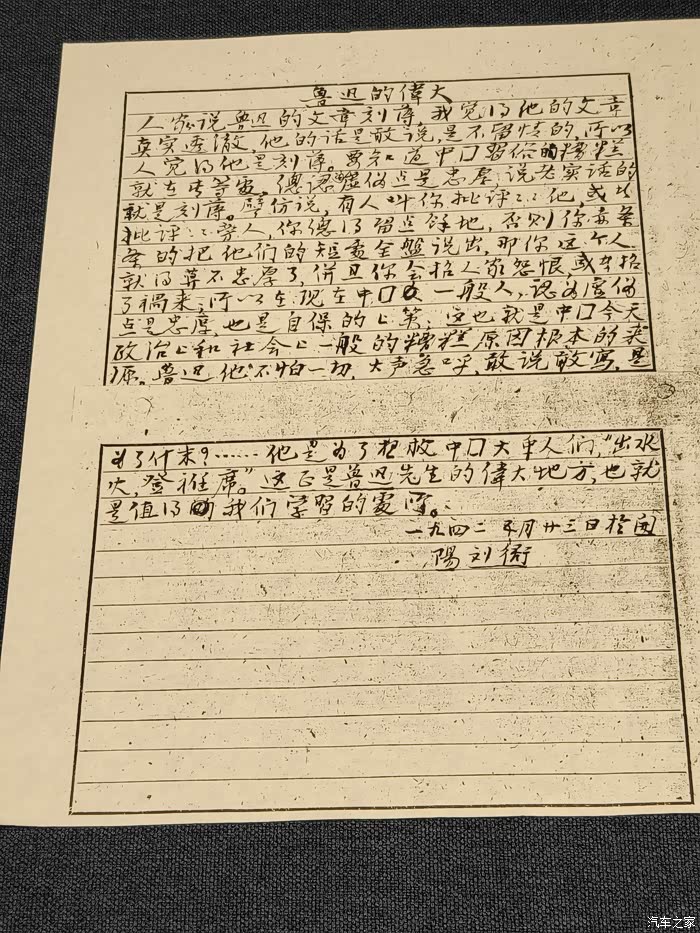 鲁迅的偉大
人家说鲁迅的文章刻薄,我觉得他的文章
真实透澈,他的话是敢说,是不留情的,所以
人觉得他是刻薄。要知道中口習俗的糟糕
就在此等處。總認虚伪点是忠厚,说老实话的
就是刻薄。譬仿说,有人叫你批评:::他,或
批评:::旁人,你總得留点餘地,否则你
的把他们的短處全盤说出,那你这个人
就得算不忠厚了,併且你会招人家怨恨,或
了禍来,所以在现在中口一般人,認为虚伪
点是忠厚,也是自保的上策;这也就是中口今天
政治上和社会上一般的糟糕原因根本的来
源。鲁迅他不怕一切,大声急呼,敢说敢写,是
为了什末?……他是为了拯救中口大众人们,“出水
火,登袵席。”这正是鲁迅先生的偉大地方,也就
是值得我们学習的處所。
一九四二年 月廿三日於
陽刘
汽车之家